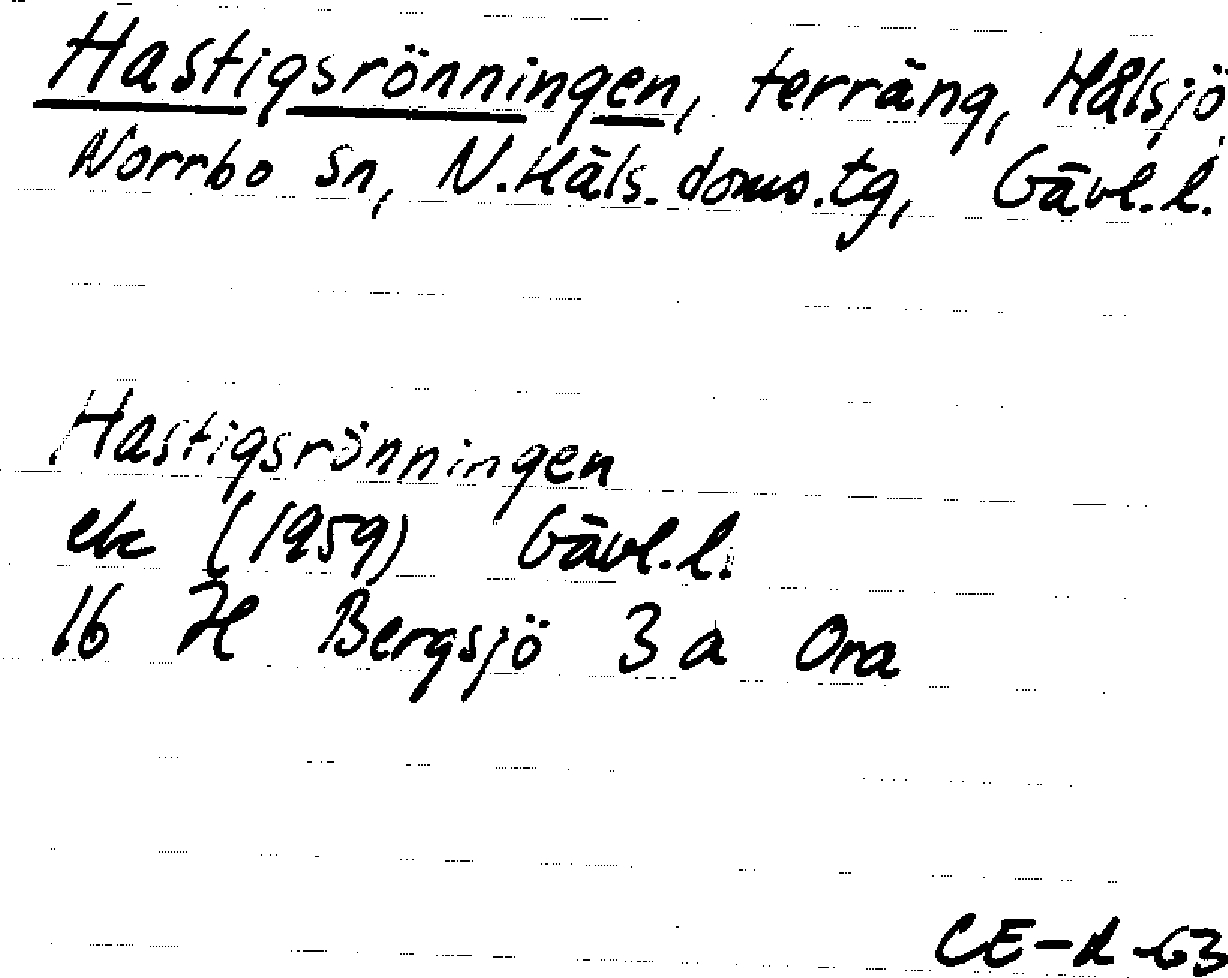 Hastigsrönningen, terräng, Hålsjö,
Norrbo sn, N.Häls. doms.tg, Gävl.l.
Hastigsrönningen
ek (1959) Gävl.l.
16 H Bergsjö 3a Ora
CE-R-63